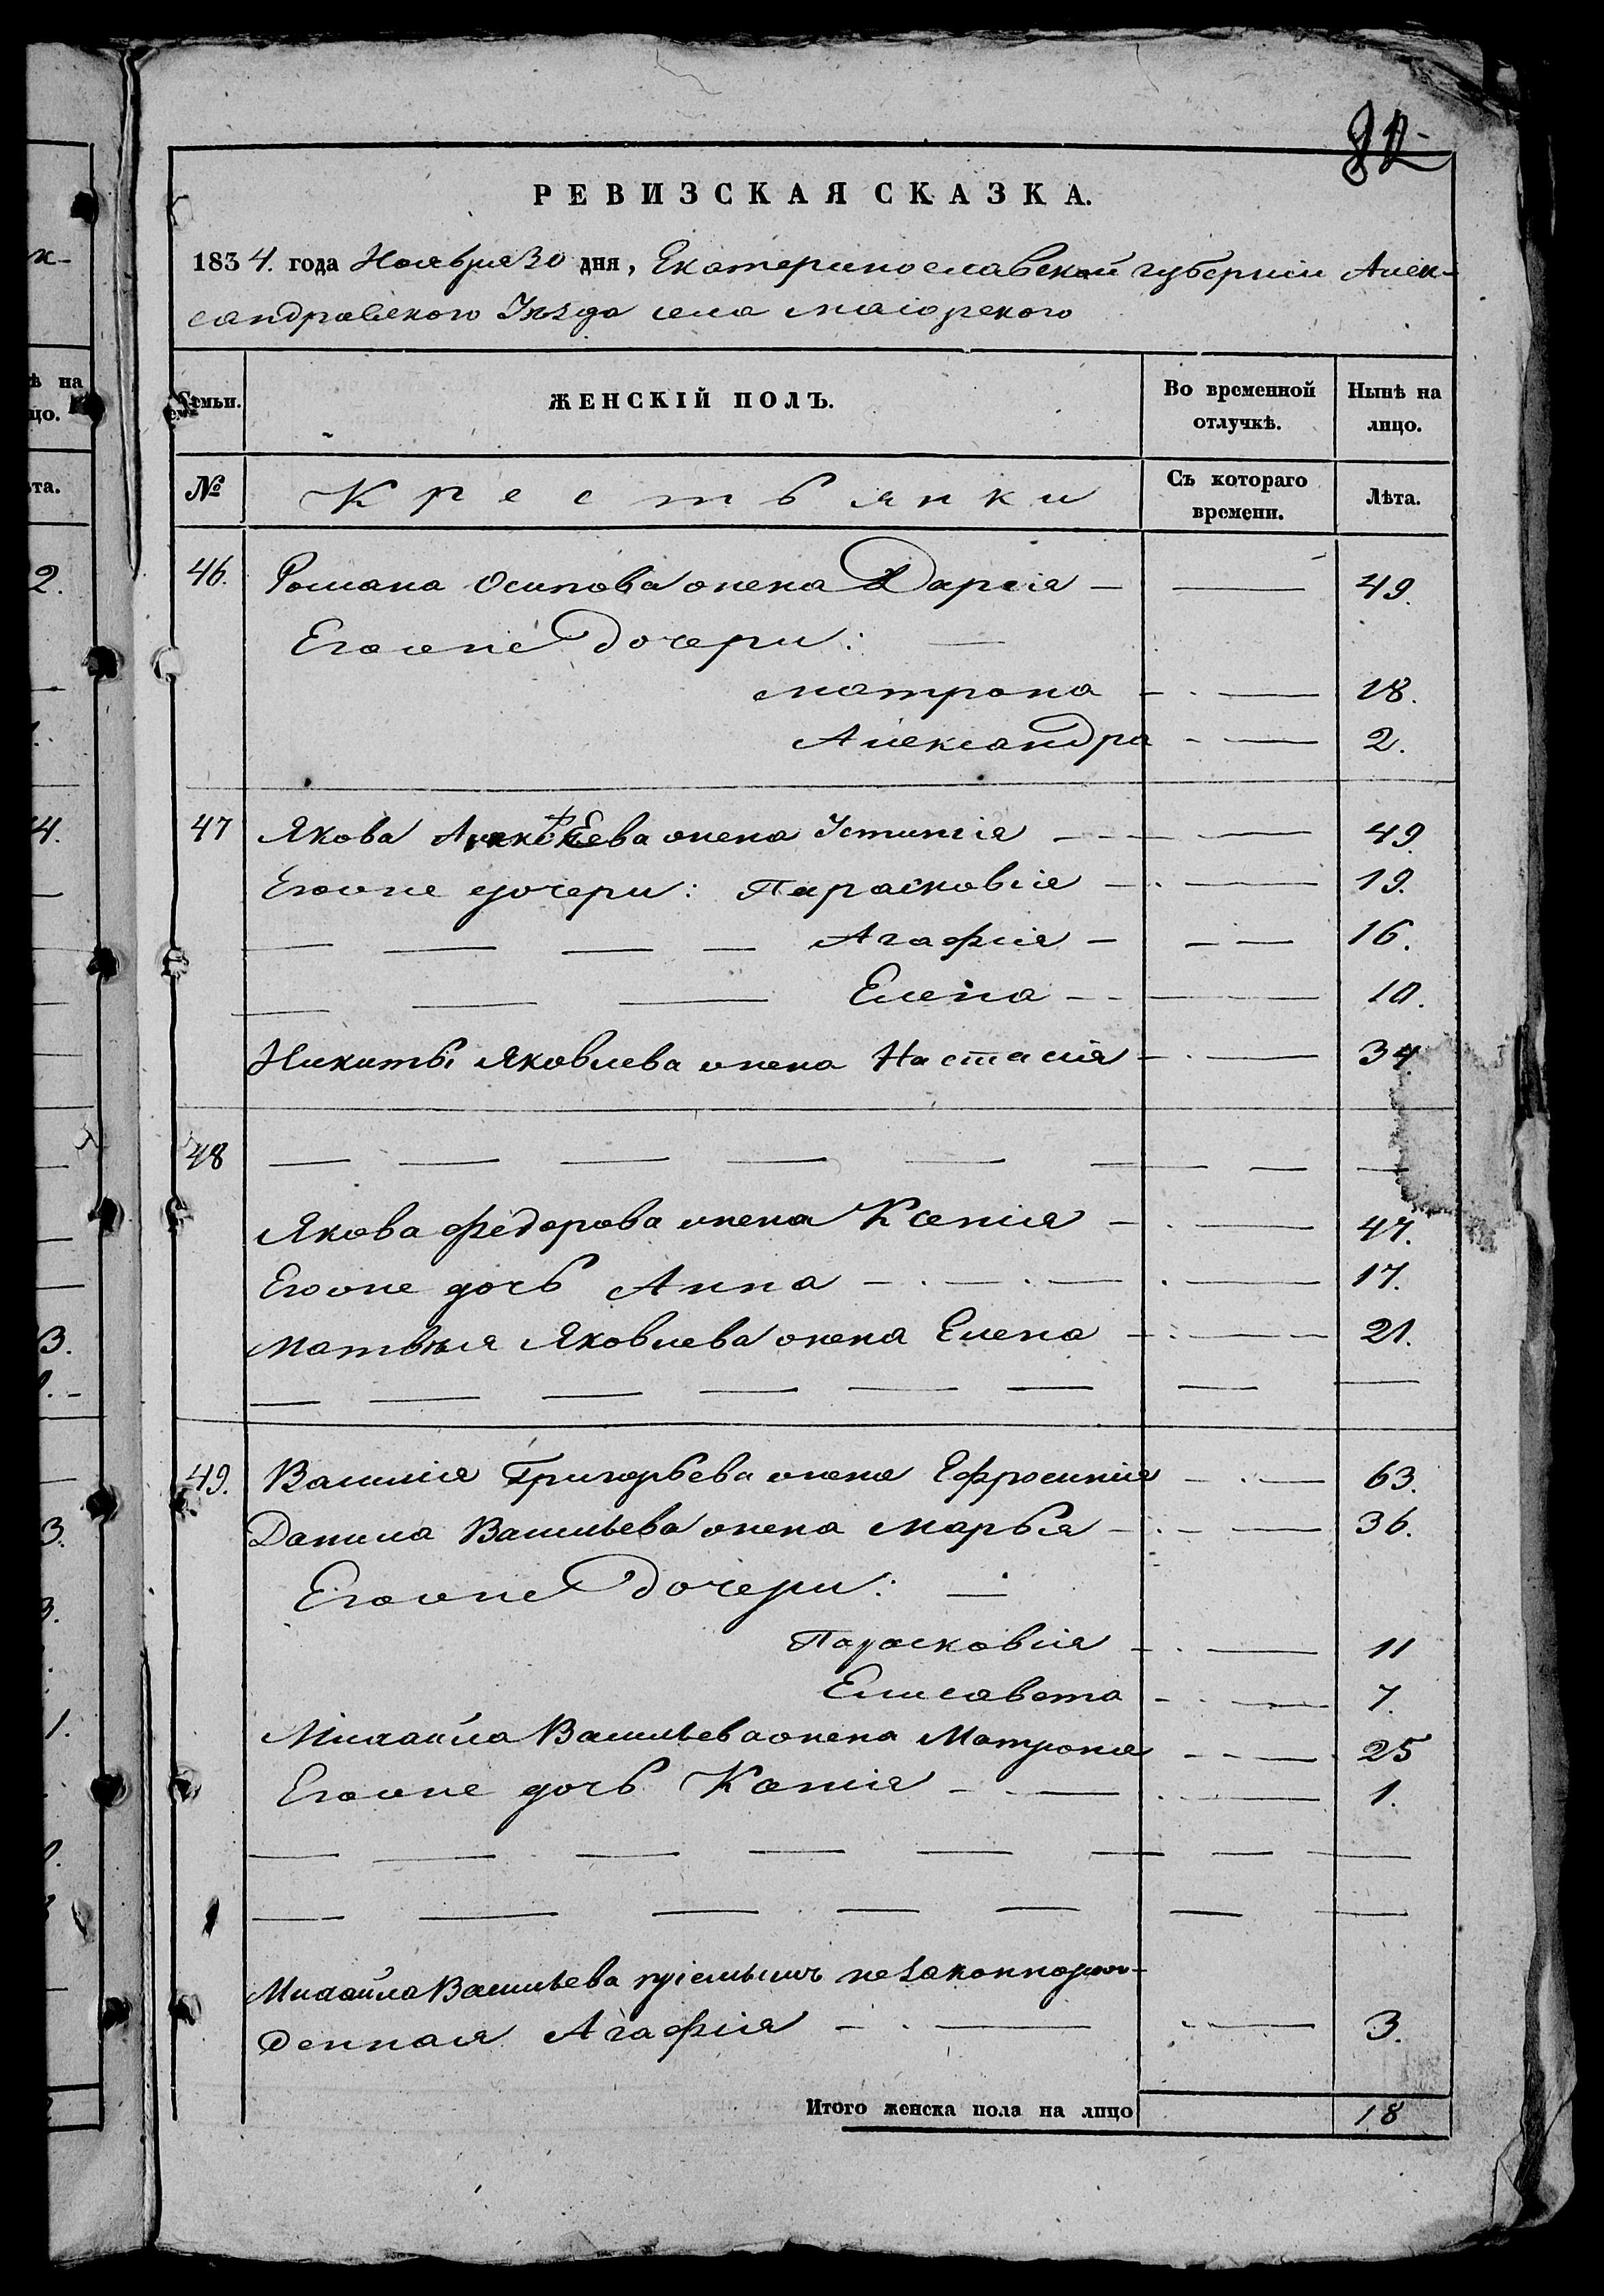 82
РЕВИЗСКАЯ СКАЗКА.
1834. года Ноября 30 дня, Екатеринославской губернїи Алек-
сандравского Уѣзда села маіорского
Семьи. ЖЕНСКІЙ ПОЛЪ. Во временной отлучкѣ. Нынѣ на лицо.
№ Крестьянки Съ котораго времени. Лѣта.
46. Романа Осипова жена Дарія — — 49.
Егоже Дочери: —
матрона — 18.
Александра — 2.
47 Якова жена Устинія — 49.
Егоже дочери: Парасковія — 19.
Агафія — 16.
Елена — 10.
Никиты Яковлева жена Настасія — 34.
48
Якова федорова жена Ксенія — 47.
Егоже дочь Анна — 17.
матвѣя Яковлева жена Елена — 21.
49. Василія Григорьева жена Ефросинія — 63.
Данила Васильева жена марья — 36.
Егоже Дочери: —
Парасковія — 11
Елисавета — 7.
Михайла Васильева жена Матрона — 25
Егоже дочь Ксенія — 1.
Михайла Васильева пріемышъ незаконнорож-
денная Агафія — 3.
Итого женска пола на лицо 18